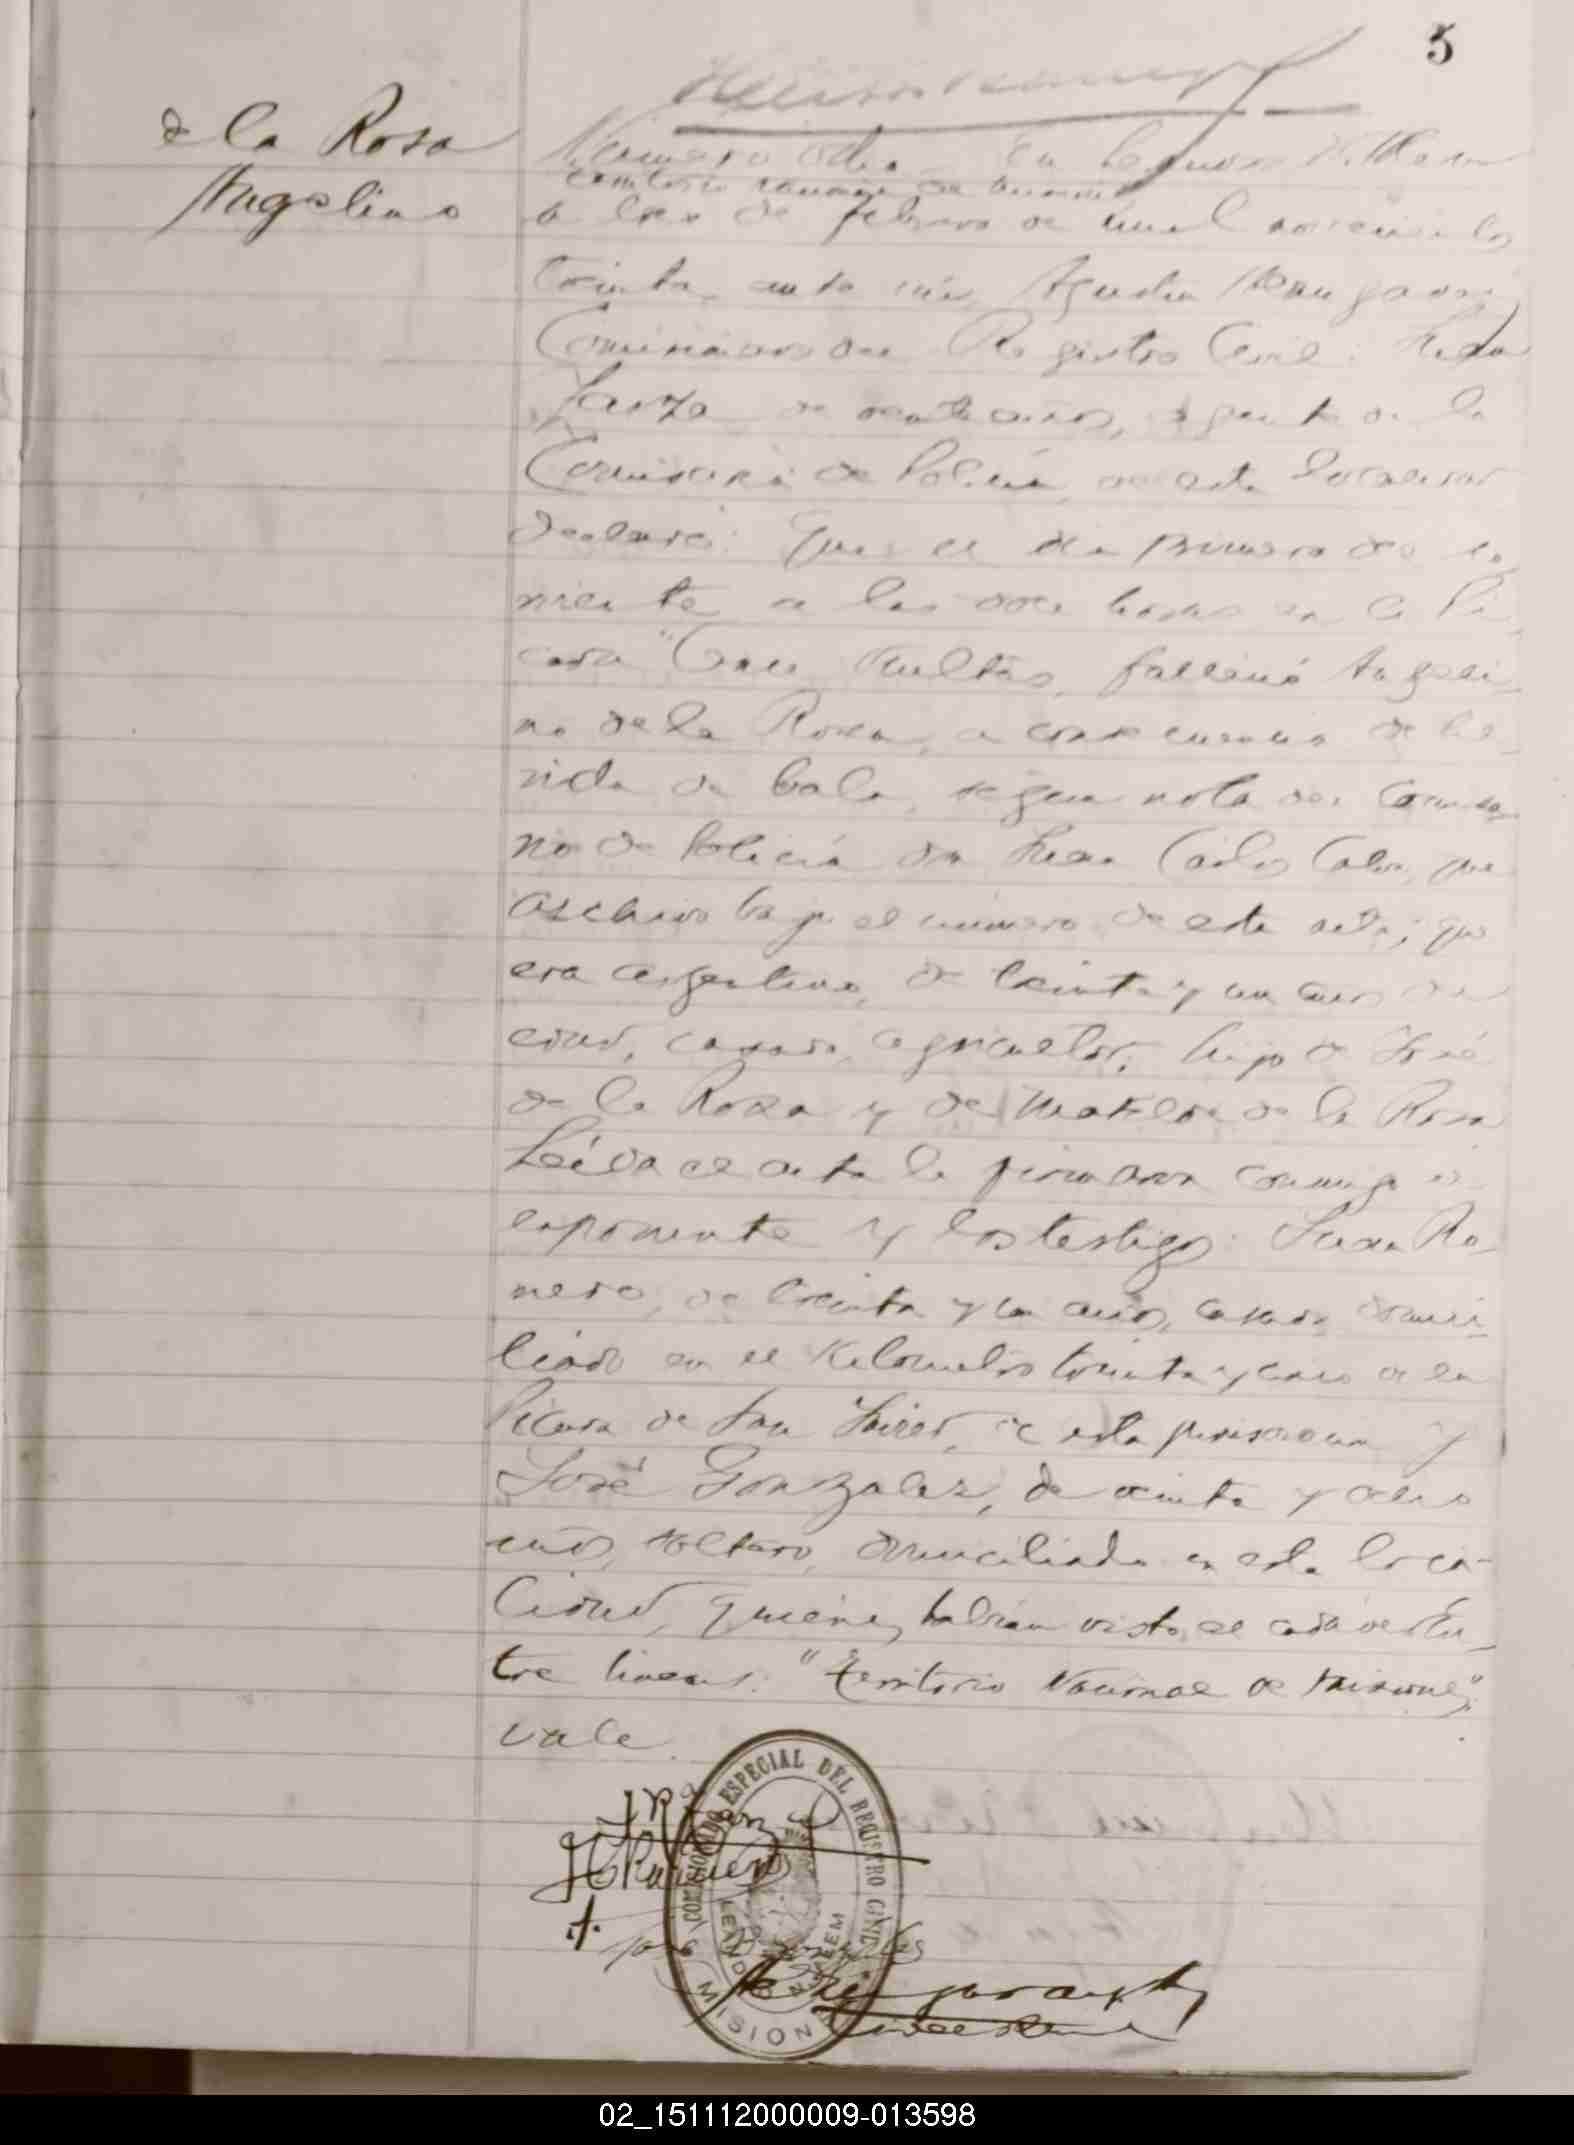 5
de la Rosa
Angelino
Número ocho. En Leandro N. Alem
territorio nacional de misiones
a tres de febrero de mil novecientos
treinta, ante mi, Agustin
Comisionado del Registro Civil: Juan
de veinte años, agente de la
Comisaria de Policia, de esta localidad
declaró: Que el dia primero del co-
rriente a las doce horas en la Pi-
cada "Once Vueltas, falleció Angeli-
no de la Rosa, a consecuencia de he-
rida de bala, segun nota del Comisa-
rio de Policía don Juan Carlos Calvo, que
archivo bajo el número de este acta; que
era argentino, de treinta y un años de
edad, casado, agricultor, hijo de José
de la Rosa y de Matilde de la Rosa
Leída el acta la firmaron conmigo el
exponente y los testigos: Juan Ra-
mero, de treinta y un años, casado, domici-
liado en el Kilometro treinta y cinco de la
Picada de San Javier, de esta jurisdiccion y
José Gonzalez, de veinte y ocho
años, soltero, domiciliado en esta loca-
lidad, quienes habian visto el cadaver En-
tre lineas: "territorio Nacional de misiones",
vale.
COMISIONADO ESPECIAL DEL REGISTRO CIVIL
LEANDRO N. ALEM
MISIONES
02_151112000009-013598